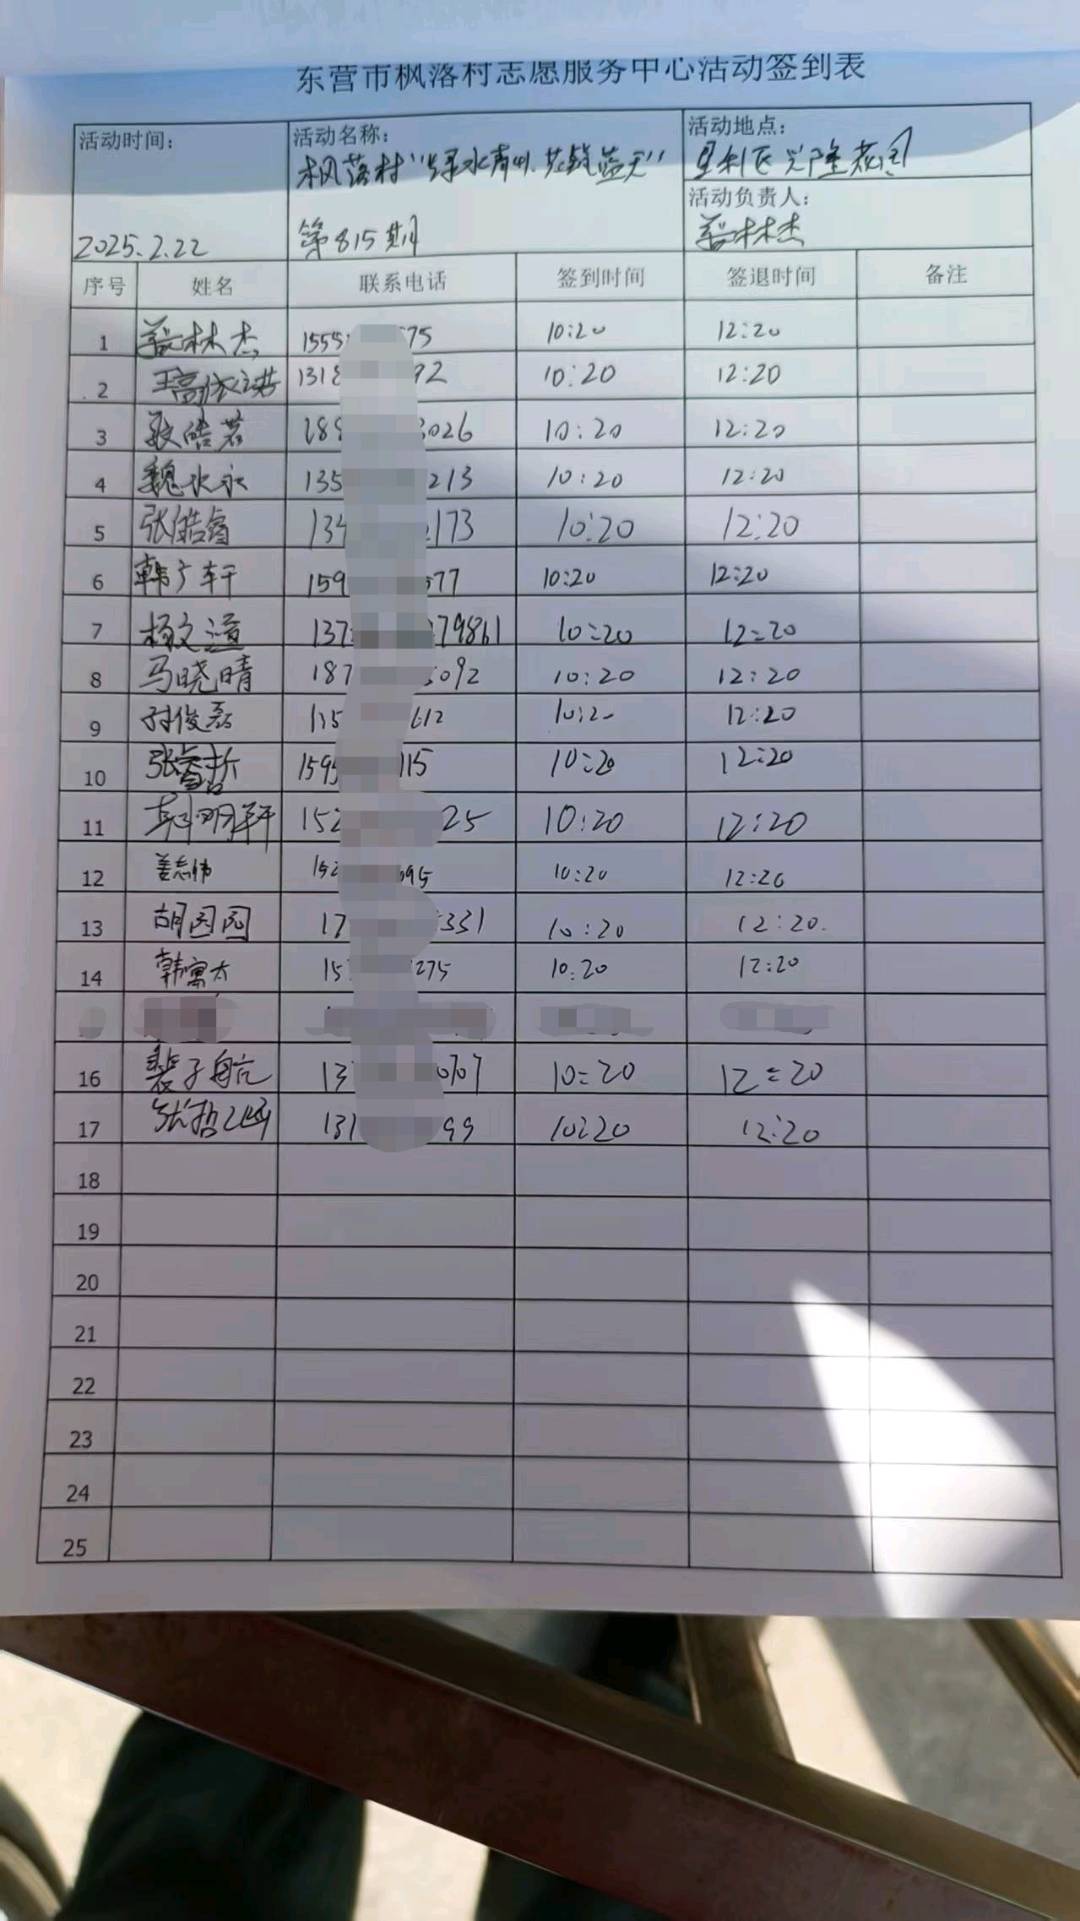 东营市枫落村志愿服务中心活动签到表
活动时间： 活动名称： 活动地点：
枫落村“绿水青山、共筑蓝天” 垦利区兴隆花园
活动负责人：
2025.2.22 第815期 林杰
序号 姓名 联系电话 签到时间 签退时间 备注
1 林杰 1555 75 10:20 12:20
2 王高 1318 92 10:20 12:20
3 皓若 188 3026 10:20 12:20
4 魏 永 135 213 10:20 12:20
5 张皓睿 134 173 10:20 12:20
6 韩广轩 159 577 10:20 12:20
7 杨文 137 79861 10:20 12:20
8 马晓晴 187 5092 10:20 12:20
9 俊磊 135 612 10:20 12:20
10 张睿哲 1595 115 10:20 12:20
11 明轩 152 25 10:20 12:20
12 姜志伟 152 095 10:20 12:20
13 胡园园 17 331 10:20 12:20.
14 韩寓太 15 275 10:20 12:20
16 裴子航 13 0707 10:20 12:20
17 张哲 131 99 10:20 12:20
18
19
20
21
22
23
24
25